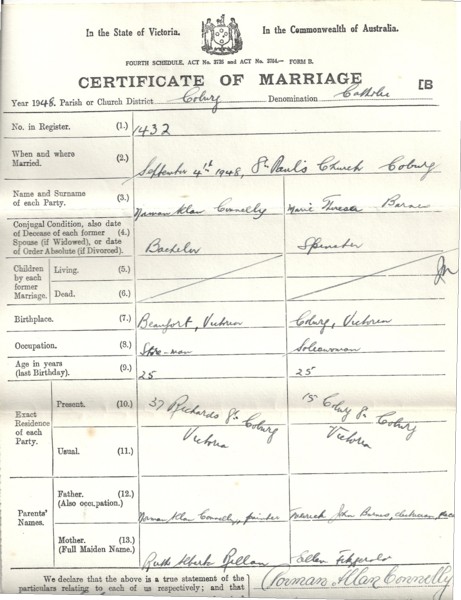 In the State of Victoria. In the Commonwealth of Australia.
FOURTH SCHEDULE, ACT No. 3726 and ACT No. 3724.— FORM B.
CERTIFICATE OF MARRIAGE [B
Year 1948. Parish or Church District Coburg Denomination Catholic
No. in Register. (1.) 1432
When and where Married. (2.) September 4th 1948, St Paul's Church Coburg
Name and Surname of each Party. (3.) Norman Allan Connelly Marie Theresa
Conjugal Condition, also date
of Decease of each former (4.)
Spouse (if Widowed), or date
of Order Absolute (if Divorced).
Bachelor Spinster
Children by each former Marriage.
Living. (5.)
Dead. (6.)
Birthplace. (7.) Beaufort, Victoria Coburg, Victoria
Occupation. (8.) Store-man Saleswoman
Age in years (last Birthday). (9.) 25 25
Exact Residence of each Party.
Present. (10.) 37 Richards St Coburg Victoria 15 Coburg St Coburg Victoria
Usual. (11.)
Parents' Names.
Father. (12.) (Also occupation.) Norman Allan Connelly, printer John
Mother. (13.) (Full Maiden Name.) Ruth Alberta Ellen Fitzgerald
We declare that the above is a true statement of the
particulars relating to each of us respectively; and that
Norman Allan Connelly